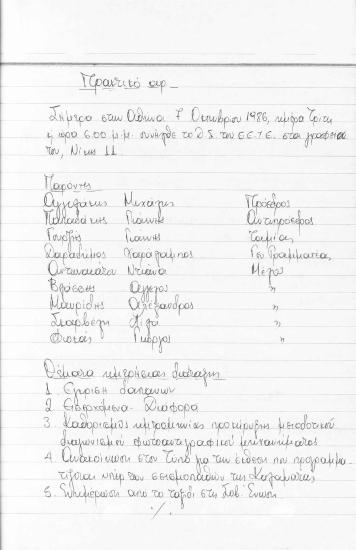 Πρακτικό αρ_
Σήμερα στην Αθήνα 7 Οκτωβρίου 1986, ημέρα Τρίτη
η ώρα 6.00 μ.μ. συνήλθε το Δ.Σ. του Ε.Ε.Τ.Ε. στα γραφεία
του, Νίκης 11
Παρόντες
Αλεξάκης Μιχάλης Πρόεδρος
Παπαδάκης Γιάννης Αντιπρόεδρος
Γουρζής Γιάννης Ταμίας
Δαραδήμος Χαράλαμπος Γεν. Γραμματέας
Αντωνακάτου Ντιάνα Μέλος
Βλάσσης Αλέκος "
Μαυρίδης Αλέξανδρος "
Σκαρβέλη Λιζα "
Φωτιάς Γιώργος "
Θέματα ημερήσιας διάταξης
1. Έγκριση δαπανών
2. Εισερχόμενα - Διάφορα
3. Καθορισμός ημερομηνίας προκήρυξης μειοδοτικού
διαγωνισμού φωτοαντιγραφικού μηχανήματος
4. Ανακοίνωση στον Τύπο για την έκθεση που προγραμμα-
τίζεται υπέρ των σεισμοπαθών της Καλαμάτας
5. Ενημέρωση από το ταξίδι στη Σοβ. Ένωση
./.